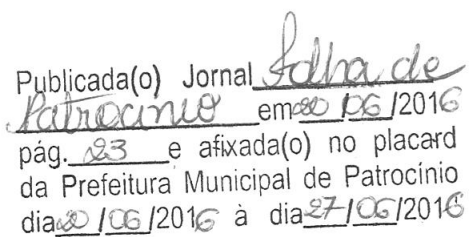 Publicada(o) Jornal Folha de
Patrocínio em 20/06/2016
pág. 23 e afixada(o) no placard
da Prefeitura Municipal de Patrocínio
dia 20/06/2016 à dia 27/06/2016